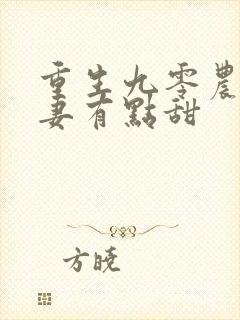 重生九零農
妻有點甜
方曉